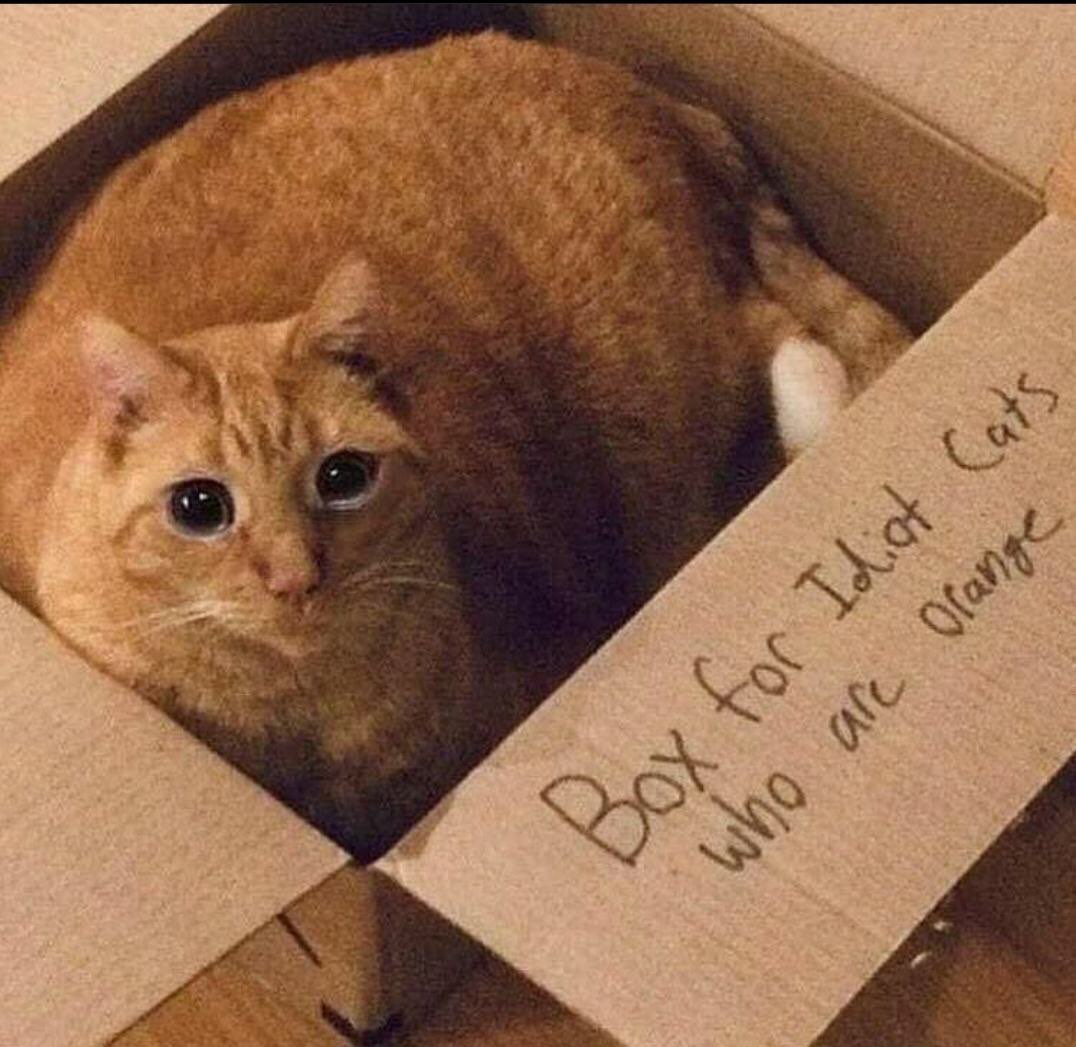 Box for Idiot Cats
who are orange